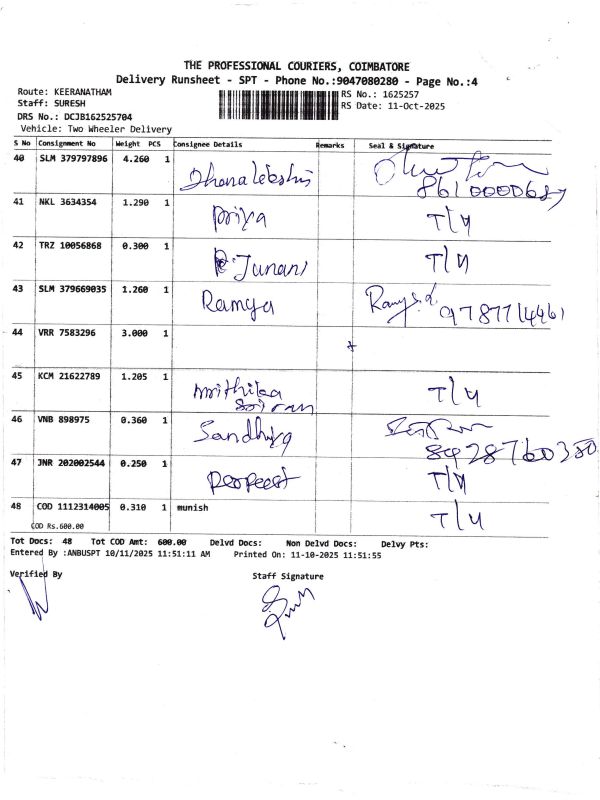 THE PROFESSIONAL COURIERS, COIMBATORE
Delivery Runsheet - SPT - Phone No.:9047080280 - Page No.:4
Route: KEERANATHAM
RS No.: 1625257
Staff: SURESH
RS Date: 11-Oct-2025
DRS No.: DCJB162525704
Vehicle: Two Wheeler Delivery
S No Consignment No Weight PCS Consignee Details Remarks Seal & Signature
40 SLM 379797896 4.260 1 Dhanalekshmi
41 NKL 3634354 1.290 1 Priya T/H
42 TRZ 10056868 0.300 1 P. Junani T/H
43 SLM 379669035 1.260 1 Ramya
44 VRR 7583296 3.000 1
45 KCM 21622789 1.205 1 T/H
46 VNB 898975 0.360 1 Sandhiya 8928760350
47 JNR 202002544 0.250 1 T/H
48 COD 1112314005 0.310 1 munish T/H
COD Rs.600.00
Tot Docs: 48 Tot COD Amt: 600.00 Delvd Docs: Non Delvd Docs: Delvy Pts:
Entered By :ANBUSPT 10/11/2025 11:51:11 AM Printed On: 11-10-2025 11:51:55
Verified By Staff Signature